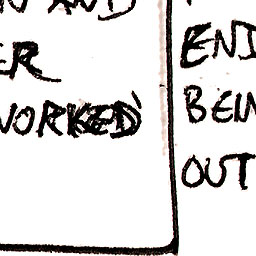 AND
ER
WORKED
END
BEIN
OUT